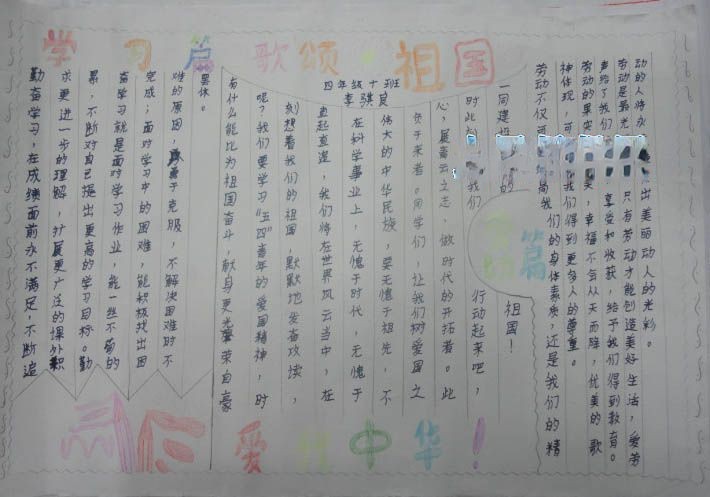 学习篇 歌颂·祖国
四年级十班
勤奋学习，在成绩面前永不满足，不断追
求更进一步的理解，扩展更广泛的课外积
累，不断对自己提出更高的学习目标。勤
奋学习就是面对学习作业，能一丝不苟的
完成；面对学习中的困难，能积极找出困
难的原因，勇于克服，不解决困难时不
罢休。
有什么能比为祖国奋斗，献身更光荣自豪
呢？我们要学习“五四”青年的爱国精神，时
刻想着我们的祖国，默默地发奋攻读，
直起直追，我们将在世界风云当中，在
在科学事业上，无愧于时代，无愧于
伟大的中华民族，要无愧于祖先，不
负于来者。同学们，让我们树爱国之
心，展青云之志，做时代的开拓者。此
时此刻 我们 行动起来吧，
一同建设 的 祖国！
篇
劳动不仅可 高我们的身体素质，还是我们的精
神体现，可 我们得到更多人的尊重。
劳动的果实 美，幸福不会从天而降，优美的歌
声给了我们 享受和收获，给予我们得到教育。
劳动是最光 只有劳动才能创造美好生活，爱劳
动的人将永 出美丽动人的光彩。
爱我中华！